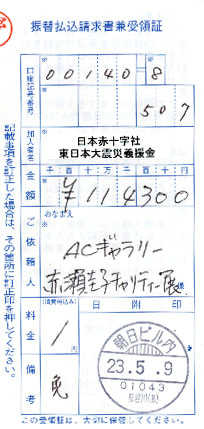 振替払込請求書兼受領証
口座記号番号
00140 8
507
加入者名
日本赤十字社
東日本大震災義援金
金額
千 百 十 万 千 百 十 円
¥114300
ご依頼人
おなまえ
ACギャラリー
赤瀬圭子チャリティー展
様
料金
(消費税込み)
1
円
日附印
朝日ビル内
23.5.9
01043
備考
免
この受領証は、大切に保管してください。
記載事項を訂正した場合は、その箇所に訂正印を押してください。